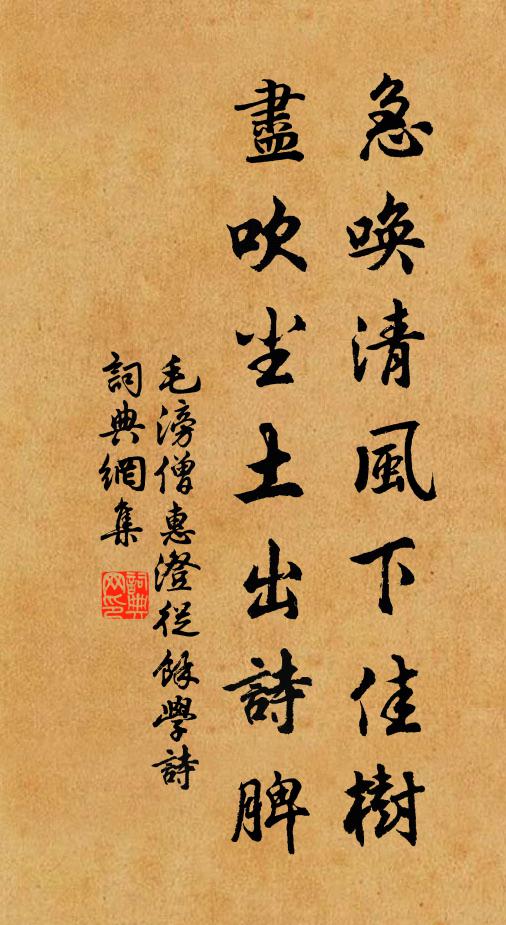 急喚清風下佳樹
盡吹尘土出詩脾
毛滂僧惠澄從餘學詩
詞典網集
詞典网印